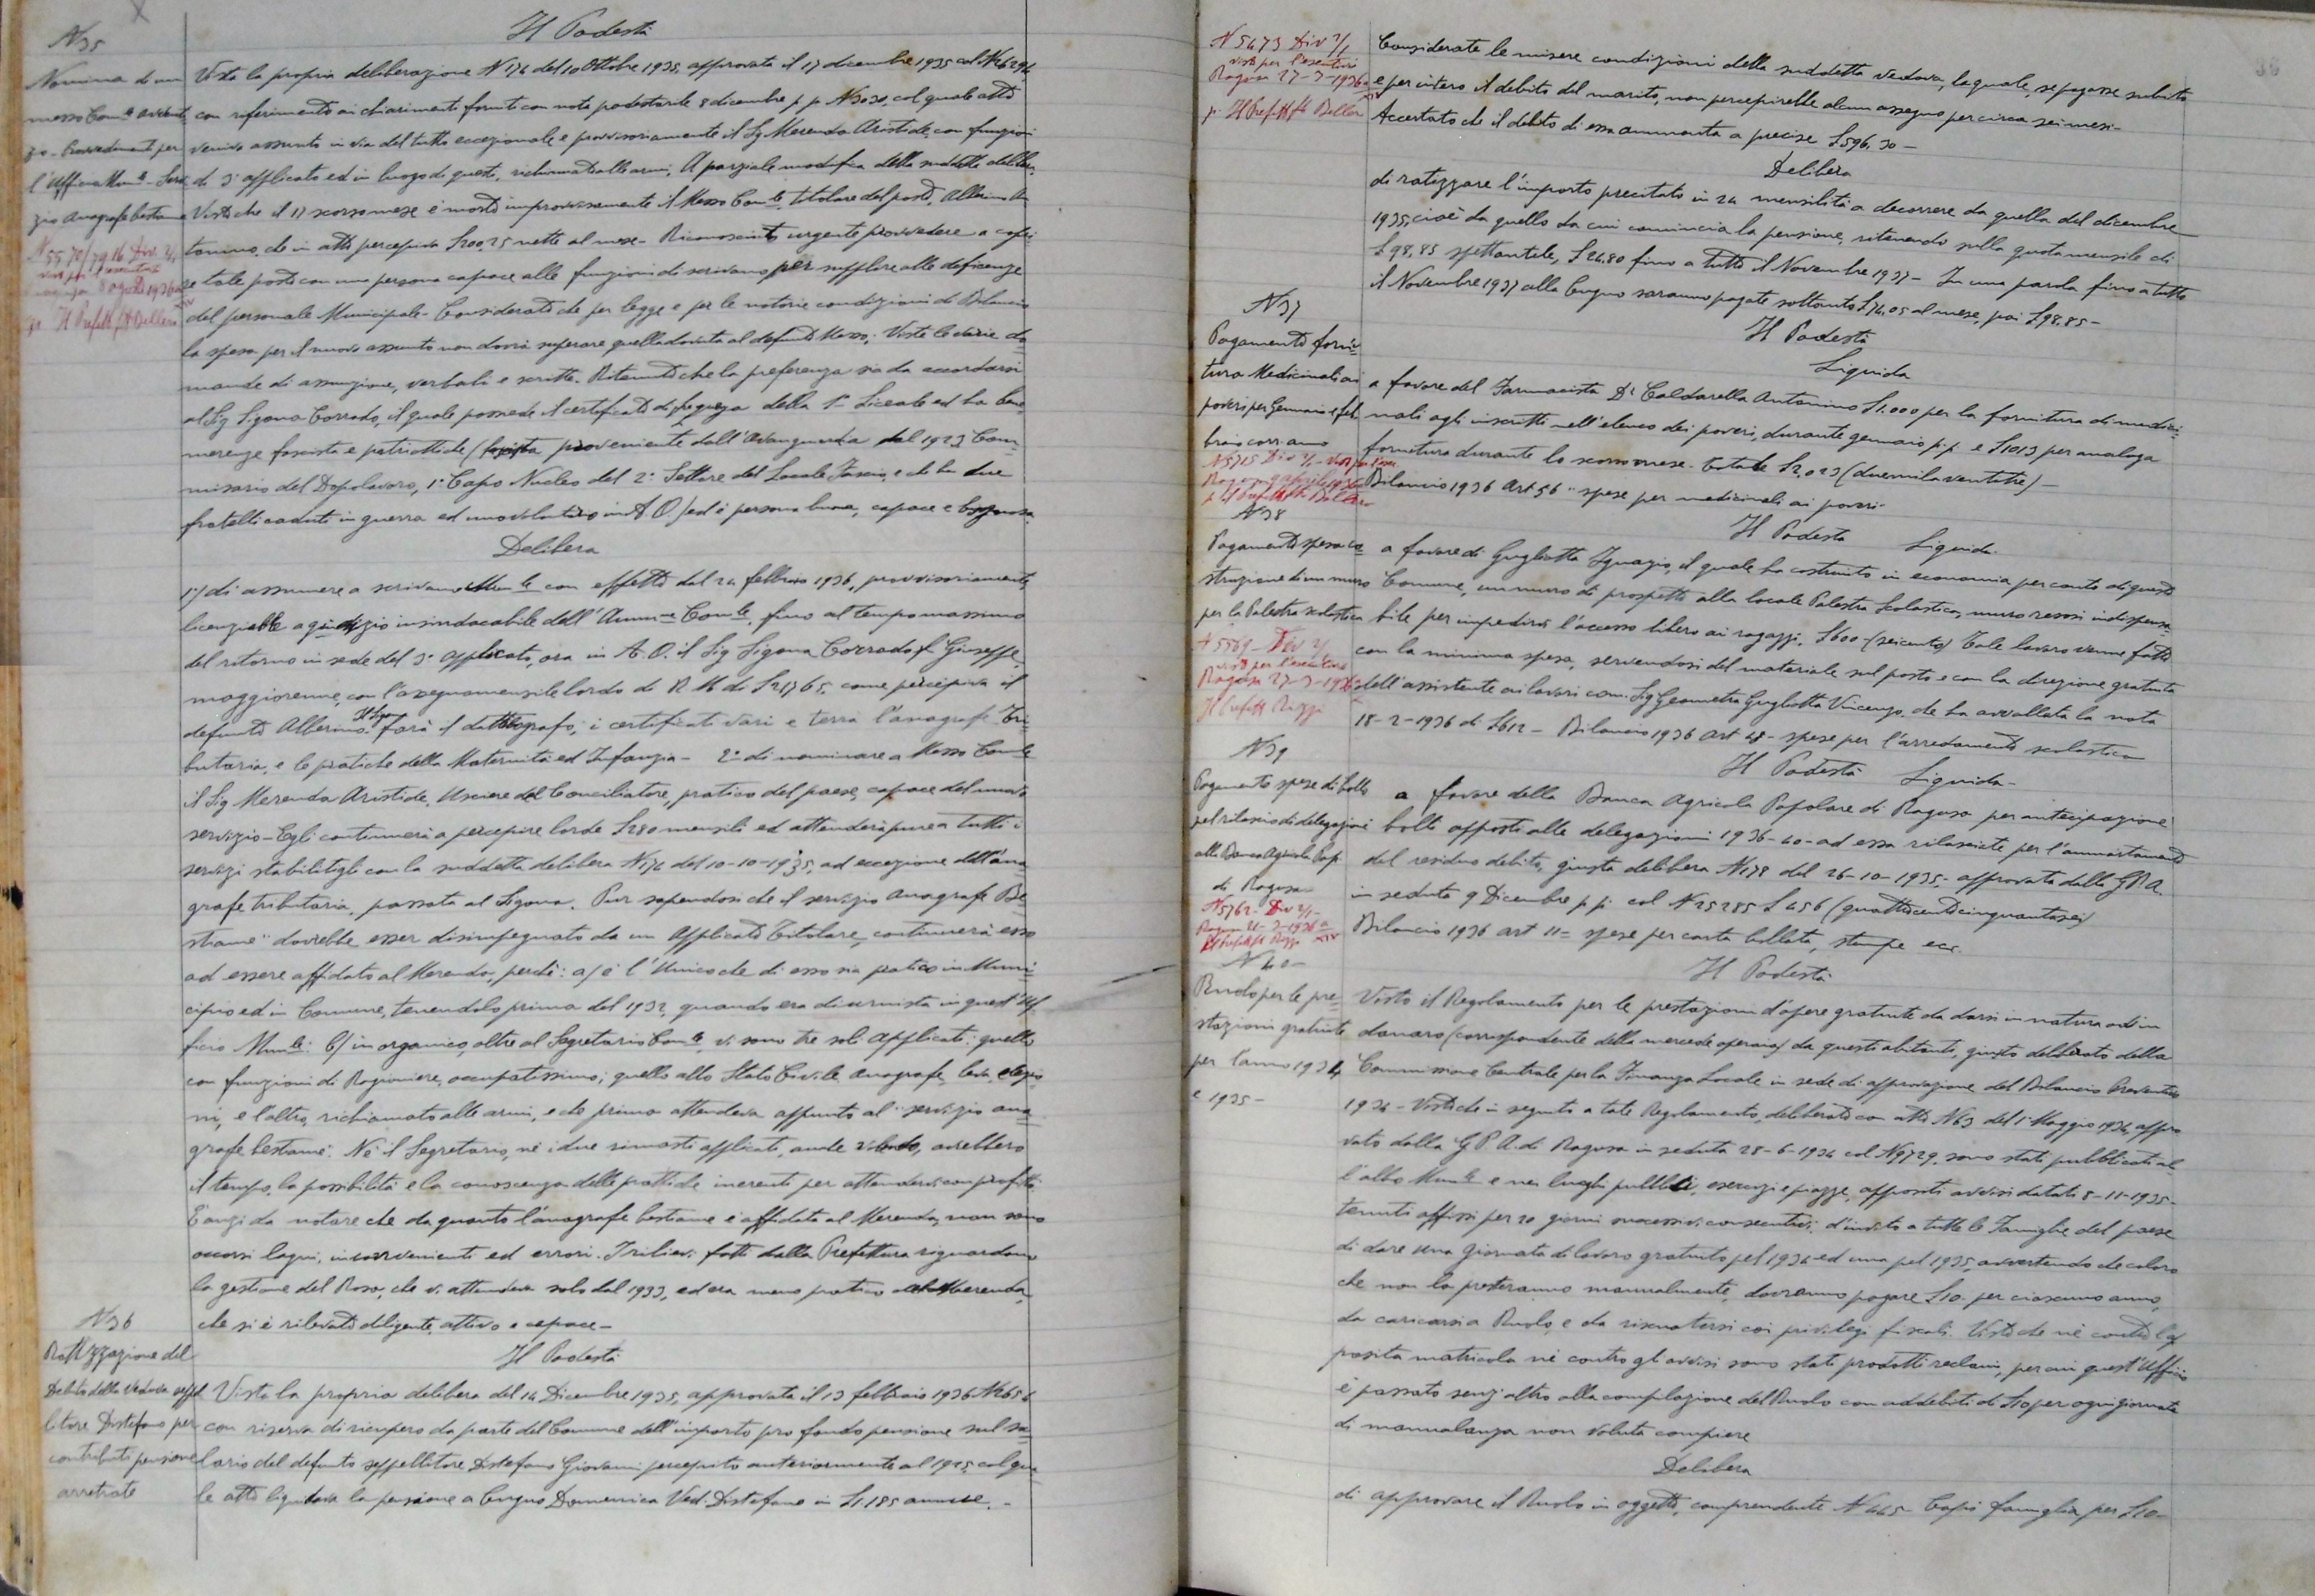 N 35
Nomina di un
messo Com.le avventi-
zio - Provvedimenti per
l'Ufficio Mun.le - Servi-
zio Anagrafe bestiame
N 5570/7916 Div. 2/1
visto per l'esecutivi
Ragusa 8 agosto 1936
p. Il Prefetto ft Bellera
Il Podestà
Vista la propria deliberazione N 174 del 10 Ottobre 1935, approvata il 17 dicembre 1935 col N 26294
con riferimento ai chiarimenti forniti con nota podestarile 8 dicembre p. p. N 3030, col quale atto
veniva assunto in via del tutto eccezionale e provvisoriamente il Sig. Merenda Aristide, con funzioni
di 3° applicato ed in luogo di questi, richiamato alle armi, A parziale modifica della suddetta delibera,
Visto che il 17 scorso mese è morto improvvisamente il Messo Com.le, titolare del posto, Alberino An
tonino, che in atto percepiva £ 200,25 nette al mese - Riconosciuto urgente provvedere a copri
re tale posto con una persona capace alle funzioni di scrivano per supplire alle deficienze
del personale Municipale - Considerato che per legge e per le notorie condizioni di Bilancio
la spesa per il nuovo assunto non dovrà superare quella dovuta al defunto Messo; Viste le varie do-
mande di assunzione, verbali e scritte. Ritenuto che la preferenza sia da accordarsi
al Sig. Sigona Corrado, il quale possiede il certificato di frequenza della 1ª Liceale ed ha bene
merenze fasciste e patriottiche (fascista proveniente dall'Avanguardia dal 1923 Com-
missario del Dopolavoro, 1° Capo Nucleo del 2° Settore del Locale Fascio, e che ha due
fratelli caduti in guerra ed uno volontario in A.O.) ed è persona buona, capace e bisognosa.
Delibera
1°/ di assumere a scrivano Mun.le con effetto dal 24 febbraio 1936, provvisoriamente,
licenziabile a giudizio insindacabile dell'Amm.ne Com.le, fino al tempo massimo
del ritorno in sede del 3° applicato, ora in A. O. il Sig Sigona Corrado f. Giuseppe,
maggiorenne, con l'assegno mensile lordo di R. M. di £ 217,65, come percepiva il
defunto Alberino. Il Sigona farà il dattilografo, i certificati vari e terrà l'anagrafe Tri-
butaria, e le pratiche della Maternità ed Infanzia - 2° di nominare a Messo Com.le
il Sig Merenda Aristide, Usciere del Conciliatore, pratico del paese, capace del nuovo
servizio - Egli continuerà a percepire lorde £ 280 mensili ed attenderà pure a tutti i
servizi stabilitigli con la suddetta delibera N 174 del 10-10-1935, ad eccezione dell'ana
grafe tributaria, passata al Sigona. Pur sapendosi che il servizio Anagrafe Be
stiame" dovrebbe esser disimpegnato da un Applicato Titolare, continuerà esso
ad essere affidato al Merenda, perchè: a) è l'Unico che di esso sia pratico in Muni-
cipio ed in Comune, tenendolo prima del 1932, quando era diurnista in quest'Uf
ficio Mun.le: b) in organico, oltre al Segretario Com.le, vi sono tre soli applicati: quello
con funzioni di Ragioniere, occupatissimo; quello allo Stato Civile, anagrafe, leva, elezio
ni, e l'altro, richiamato alle armi, e che prima attendeva appunto al "servizio ana
grafe bestiame". Nè il Segretario, nè i due rimasti applicati, anche volendo, avrebbero
il tempo, la possibilità e la conoscenza delle pratiche inerenti per attendervi con profitto.
È anzi da notare che da quanto l'anagrafe bestiame è affidata al Merenda, non sono
occorsi lagni, inconvenienti ed errori. I rilievi fatti dalla Prefettura riguardano
la gestione del Rosa, che vi attendeva solo dal 1933, ed era meno pratico del Merenda,
che si è rilevato diligente, attivo e capace -
N 36
Ratizzazione del
Debito della Vedova seppel
litore Distefano per
contributi pensione
arretrate
Il Podestà
Vista la propria delibera del 14 Dicembre 1935, approvata il 13 febbraio 1936 N 2656
con riserva di ricupero da parte del Comune dell'importo pro fondo pensione sul sa-
lario del defunto seppellitore Distefano Giovanni percepito anteriormente al 1925, col qua
le atto liquidava la pensione a Cugno Domenica Ved. Distefano in £ 1.185 annue. -
N 5473 Div 2/1
visto per l'esecutivi
Ragusa 27-3-1936 a XIV
p. Il Prefetto ft Bellera
Considerate le misere condizioni della suddetta vedova, la quale, se pagasse subito
e per intero il debito del marito, non percepirebbe alcun assegno per circa sei mesi -
Accertato che il debito di essa ammonta a precise £ 596,30 -
Delibera
di ratizzare l'importo precitato in 24 mensilità a decorrere da quella del dicembre
1935, cioè da quello da cui comincia la pensione, ritenendo sulla quota mensile di
£ 98,85 spettantele, £ 24,80 fino a tutto il Novembre 1937 - In una parola fino a tutto
il Novembre 1937 alla Cugno saranno pagate soltanto £ 74,05 al mese, poi £ 98,85 -
N 37
Pagamento forni-
tura Medicinali ai
poveri per Gennaio e feb
braio corr. anno
N 5715 Div 2/1 - Visto per l'esec.
Ragusa 9 aprile 1936
p. Il Prefetto ft Bellera
Il Podestà
Liquida
a favore del Farmacista Dr Caldarella Antonino £ 1.000 per la fornitura di medici-
nali agli inscritti nell'elenco dei poveri, durante gennaio p. p. e £ 1013 per analoga
fornitura durante lo scorso mese - totale £ 2,023 (duemilaventitre) -
Bilancio 1936 Art 56 "spese per medicinali ai poveri -
N 38
Pagamento spesa co-
struzione di un muro
per la Palestra scolastica
N 5569 - Div 2/1
visto per l'esecutivi
Ragusa 27-3-1936
Il Prefetto Rizzi
Il Podestà Liquida
a favore di Gugliotta Ignazio, il quale ha costruito in economia per conto di questo
Comune, un muro di prospetto alla locale Palestra Scolastica, muro resosi indispensa-
bile per impedirsi l'accesso libero ai ragazzi, £ 600 - (seicento) Tale lavoro venne fatto
con la minima spesa, servendosi del materiale sul posto e con la direzione gratuita
dell'assistente ai lavori com. Sig Geometra Gugliotta Vincenzo, che ha avvallata la nota
18-2-1936 di £ 612 - Bilancio 1936 Art 48 - spese per l'arredamento scolastico
N 39
Pagamento spese di bollo
pel rilascio di delegazioni
alla Banca Agricola Pop.
di Ragusa
N 5762 - Div 2/1 -
Ragusa 21-3-1936 a
Il Prefetto ft Rizzi XIV
Il Podestà Liquida -
a favore della Banca Agricola Popolare di Ragusa per anticipazione
bolli apposti alle delegazioni 1936-40 - ad essa rilasciate per l'ammortamento
del residuo debito, giusta delibera N 178 del 26-10-1935, approvata dalla G.P.A.
in seduta 9 Dicembre p. p. col N 25285 £ 456 (quattrocentocinquantasei)
Bilancio 1936 art 11 = spese per carta bollata, stampe ecc.
N 40 -
Ruolo per le pre-
stazioni gratuite
per l'anno 1934
e 1935 -
Il Podestà
Visto il Regolamento per le prestazioni d'opere gratuite da darsi in natura od in
danaro (corrispondente della mercede operaia) da questi abitanti, giusto deliberato della
Commissione Centrale per la Finanza Locale in sede di approvazione del Bilancio Preventivo
1934 - Visto che in seguito a tale Regolamento, deliberato con atto N 63 del 1° Maggio 1934, appro
vato dalla G. P. A. di Ragusa in seduta 28-6-1934 col N 9729, sono stati pubblicati al
l'albo Mun.le e nei luoghi pubblici, esercizi e piazze, appositi avvisi datati 8-11-1935 -
tenuti affissi per 20 giorni successivi consecutivi, d'invito a tutte le Famiglie del paese
di dare una Giornata di lavoro gratuito pel 1934 ed una pel 1935, avvertendo che coloro
che non la presteranno manualmente, dovranno pagare £ 10 - per ciascuno anno,
da caricarsi a Ruolo, e da riscuotersi coi privilegi fiscali. Visto che nè contro l'ap
posita matricola nè contro gli avvisi sono stati prodotti reclami, per cui quest'Ufficio
è passato senz'altro alla compilazione del Ruolo con addebiti di £ 10 per ogni giornata
di manualanza non voluta compiere
Delibera
di approvare il Ruolo in oggetto, comprendente N 465 - Capi famiglia per £ 10 -